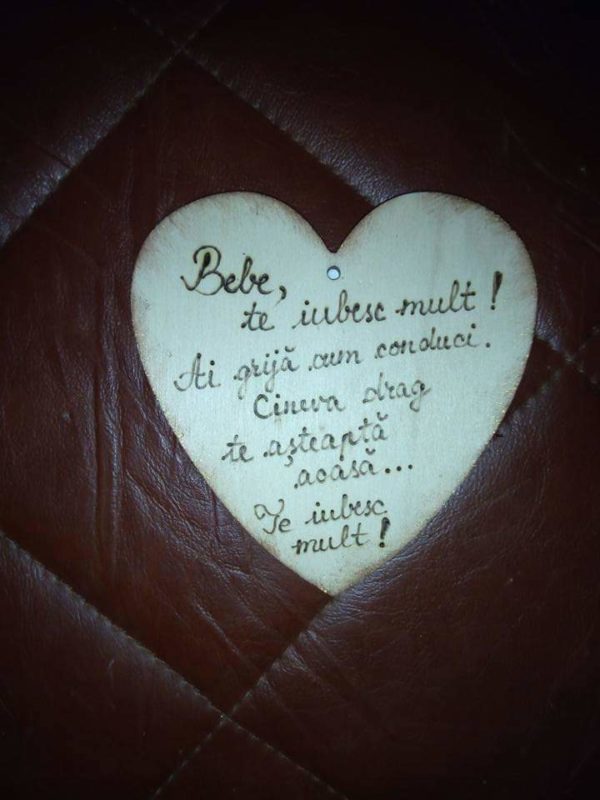 Bebe,
te iubesc mult!
Ai grijă cum conduci.
Cineva drag
te așteaptă
acasă...
Te iubesc
mult!